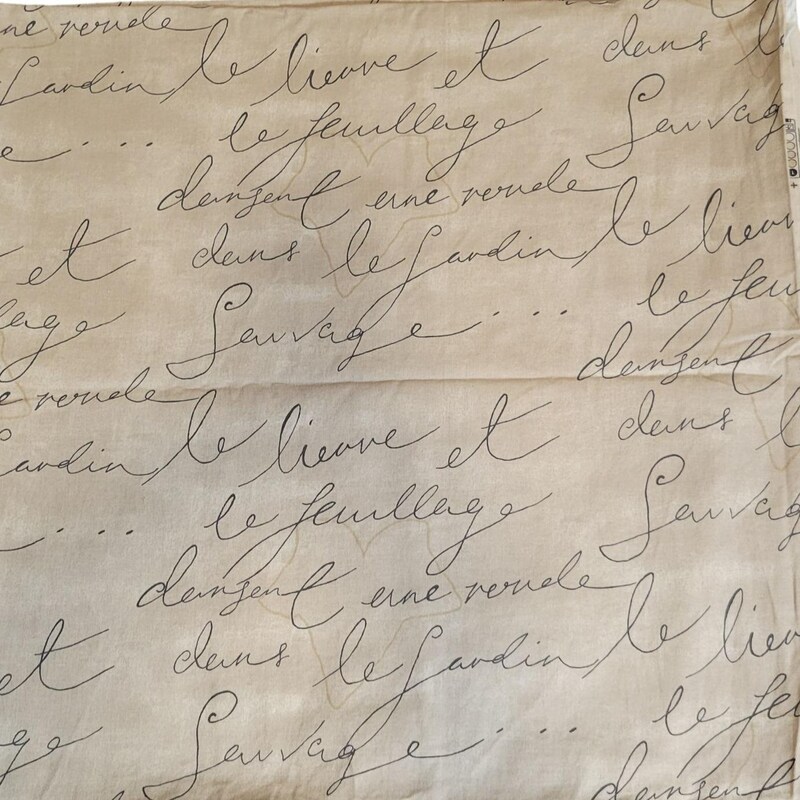 une ronde
Jardin le lierre et dans l
e... le feuillage Sauvag
dansent une ronde
et dans le Jardin le lierr
lage Sauvage... le feu
dansent
e ronde
Jardin le lierre et dans l
... le feuillage Sauvag
dansent une ronde
et dans le Jardin le lier
ge Sauvage... le feu
dansent